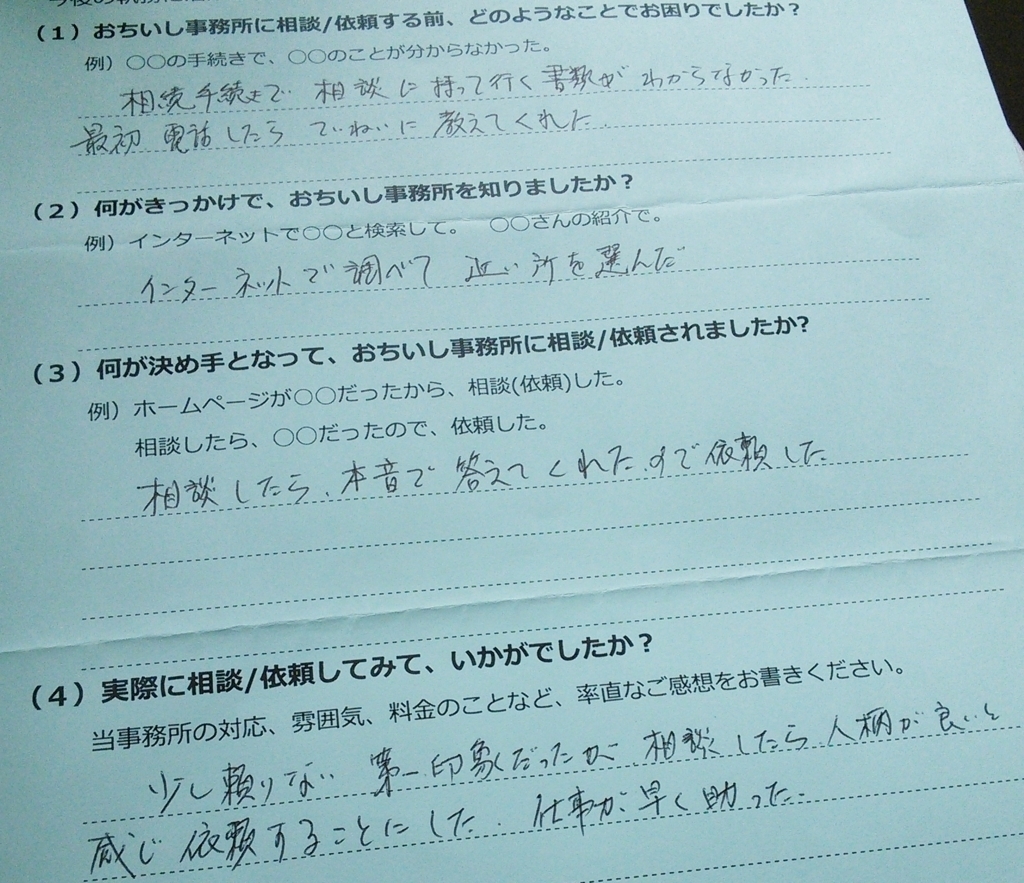 (1) おちいし事務所に相談/依頼する前、どのようなことでお困りでしたか？
例）○○の手続きで、○○のことが分からなかった。
相続手続きで 相談に持って行く書類がわからなかった.
最初 電話したら ていねいに 教えてくれた.
(2) 何がきっかけで、おちいし事務所を知りましたか？
例）インターネットで○○と検索して。 ○○さんの紹介で。
インターネットで調べて 近い所を選んだ
(3) 何が決め手となって、おちいし事務所に相談/依頼されましたか?
例）ホームページが○○だったから、相談(依頼)した。
相談したら、○○だったので、依頼した。
相談したら、本音で答えてくれたので依頼した
(4) 実際に相談/依頼してみて、いかがでしたか？
当事務所の対応、雰囲気、料金のことなど、率直なご感想をお書きください。
少し頼りない 第一印象だったが 相談したら人柄が良いと
感じ 依頼することにした. 仕事が早く助った.